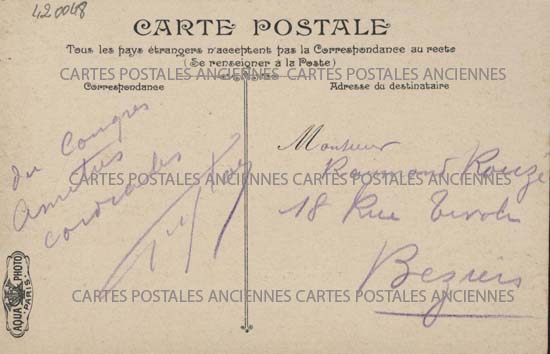 420048
CARTE POSTALE
Tous les pays étrangers n'acceptent pas la Correspondance au recto
(Se renseigner à la Poste)
CARTES POSTALES ANCIENNES CARTES POSTALES ANCIENNES
Correspondance
Adresse du destinataire
du Congres
Amitiés
cordiales
Monsieur
Raymond Rouze
18 Rue Tivoli
Beziers
CARTES POSTALES ANCIENNES CARTES POSTALES ANCIENNES
CARTES POSTALES ANCIENNES CARTES POSTALES ANCIENNES
AQUA PHOTO
PARIS